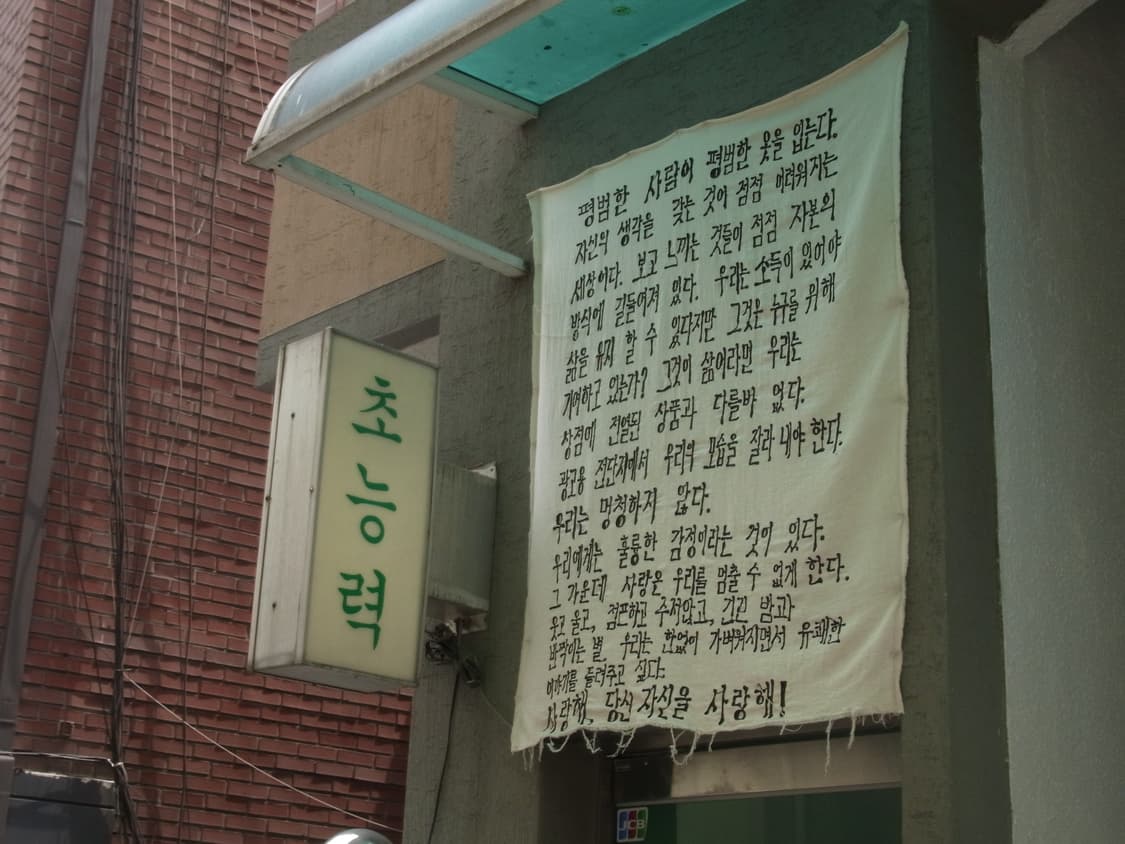 평범한 사람이 평범한 옷을 입는다.
자신의 생각을 갖는 것이 점점 어려워지는
세상이다. 보고 느끼는 것들이 점점 자본의
방식에 길들여져 있다. 우리는 소득이 있어야
삶을 유지 할 수 있다지만 그것은 누구를 위해
기여하고 있는가? 그것이 삶이라면 우리는
상점에 진열된 상품과 다를바 없다.
광고용 전단지에서 우리의 모습을 잘라 내야 한다.
우리는 멍청하지 않다.
우리에게는 훌륭한 감정이라는 것이 있다.
그 가운데 사랑은 우리를 멈출 수 없게 한다.
웃고 울고, 점프하고 주저앉고, 긴긴 밤과
반짝이는 별. 우리는 한없이 가벼워지면서 유쾌한
이야기를 들려주고 싶다.
사랑해, 당신 자신을 사랑해!
초능력
JCB